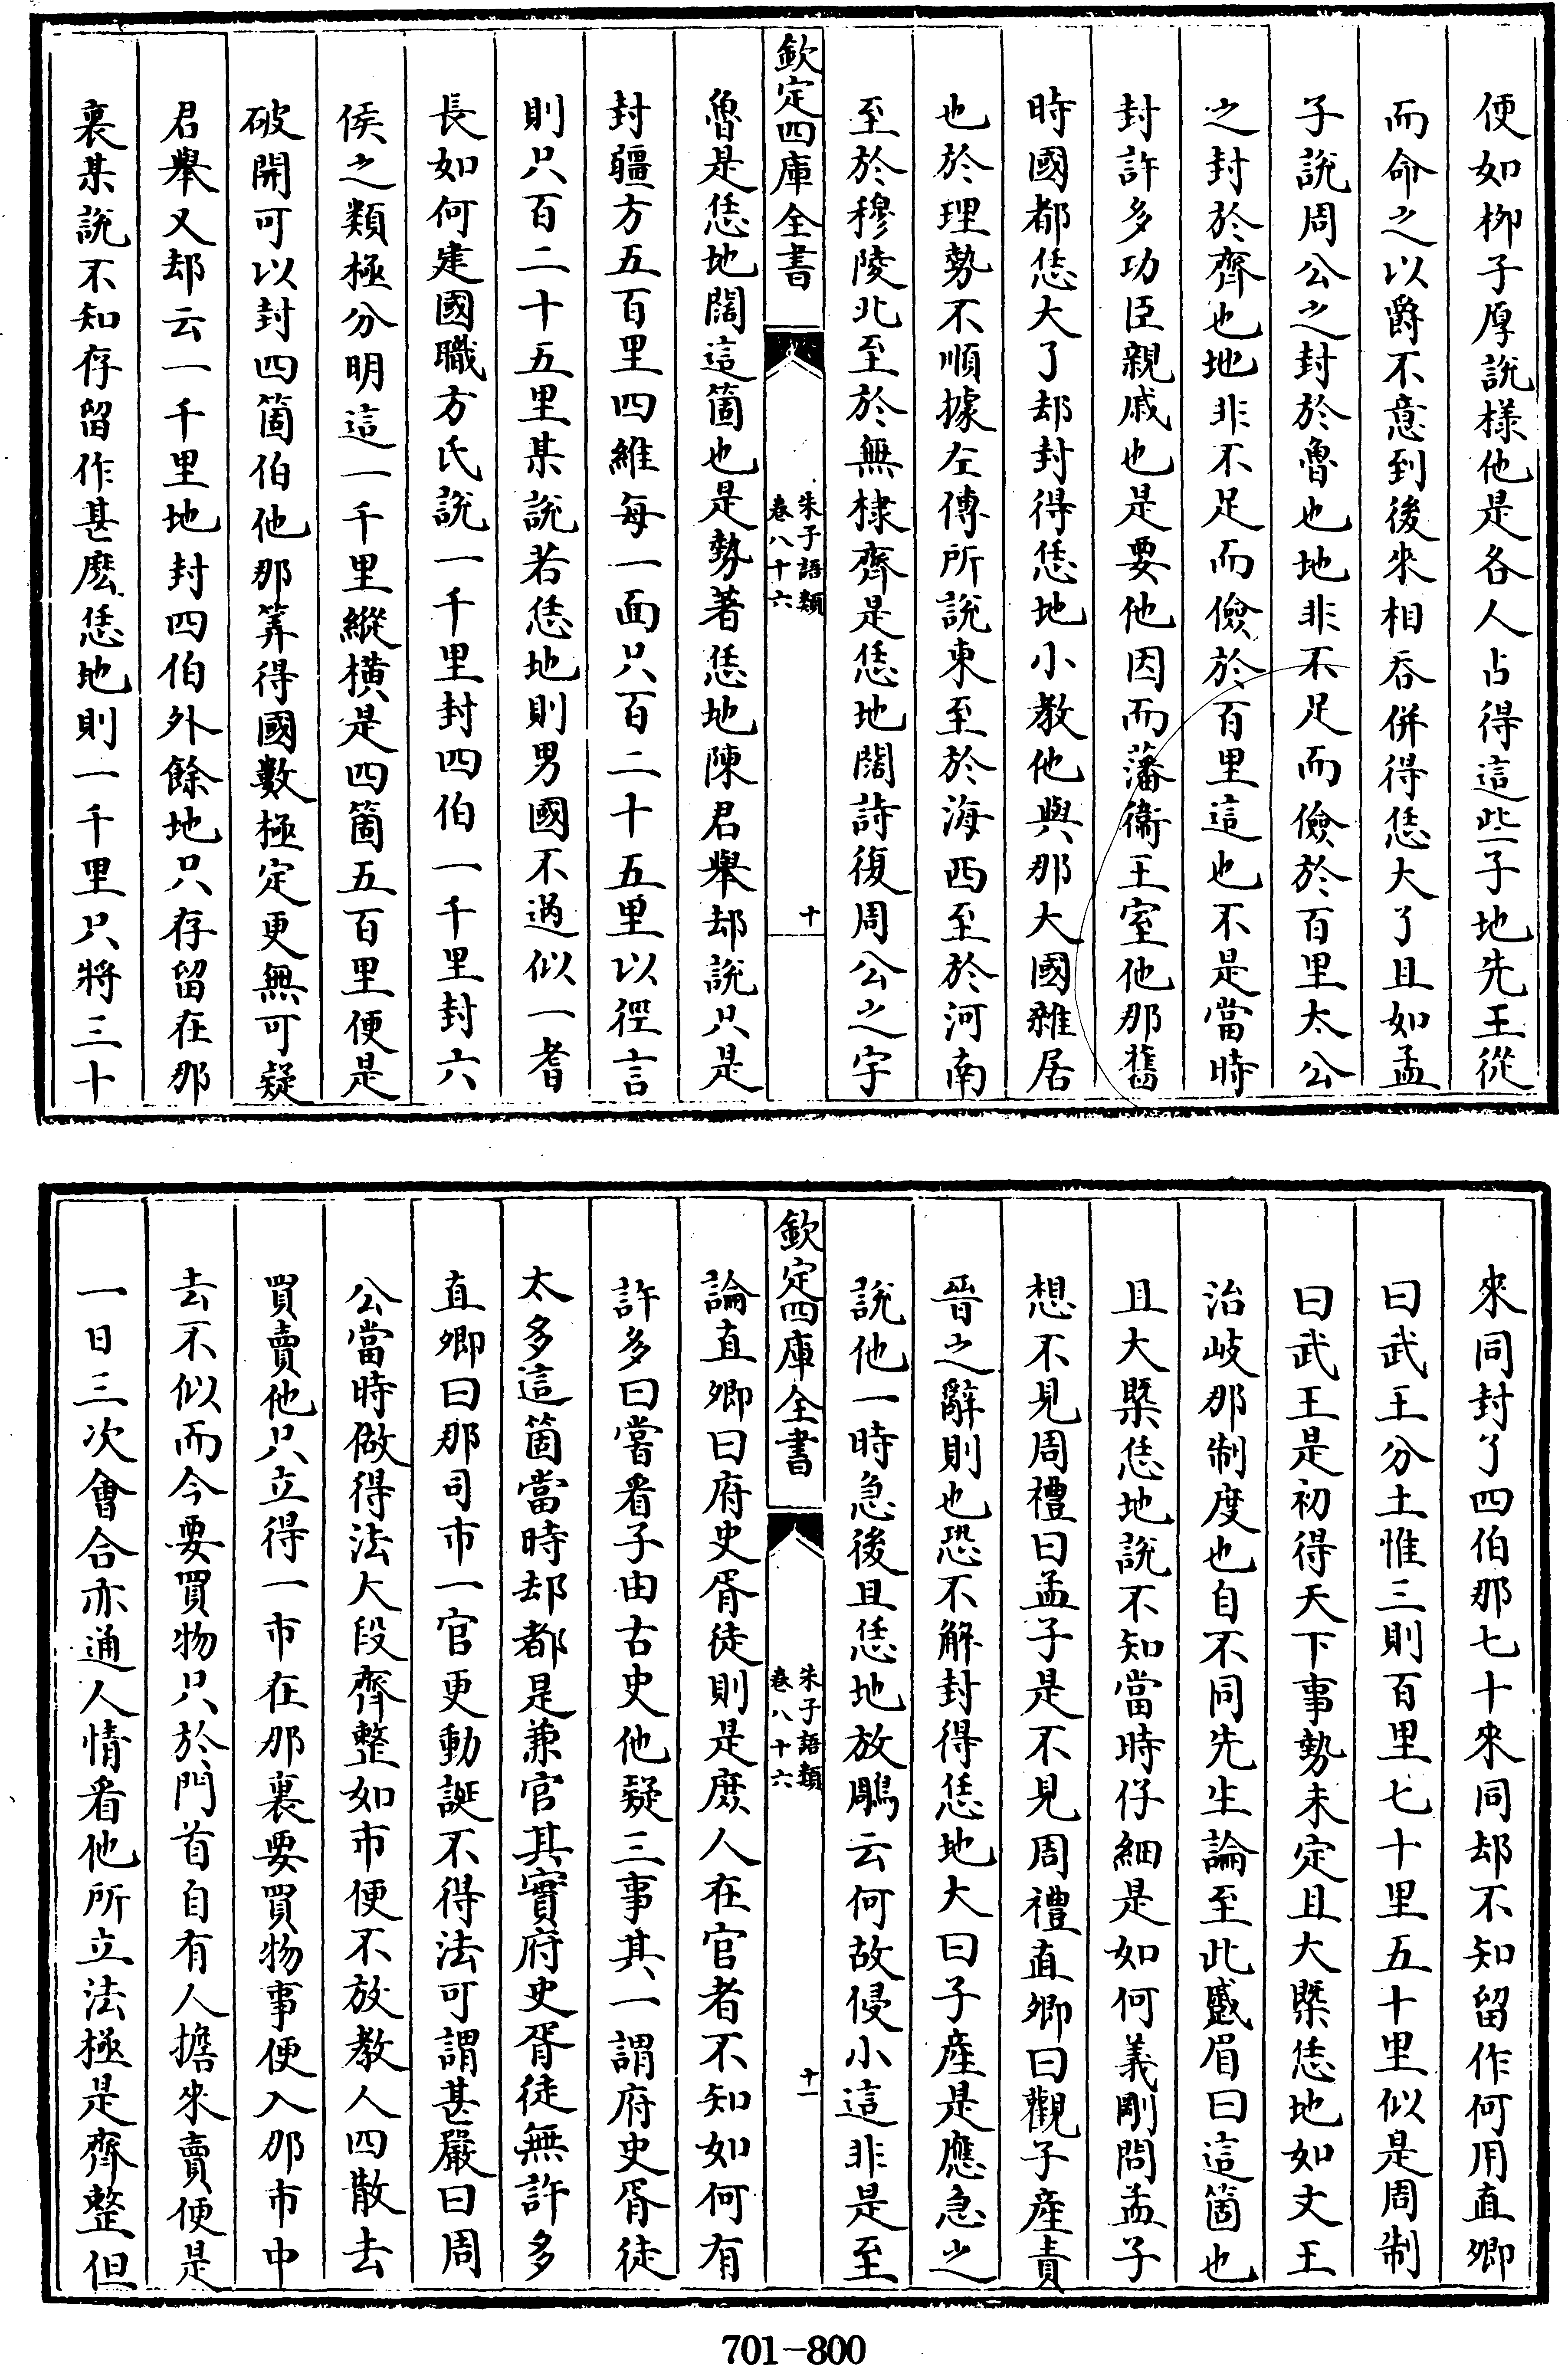 便如柳子厚說樣他是各人占得這些子地先王從
而命之以爵不意到後來相吞併得恁大了且如孟
子說周公之封於魯也地非不足而儉於百里太公
之封於齊也地非不足而儉於百里這也不是當時
封許多功臣親戚也是要他因而藩衞王室他那舊
時國都恁大了却封得恁地小教他與那大國雜居
也於理勢不順據左傳所說東至於海西至於河南
至於穆陵北至於無棣齊是恁地闊詩復周公之宇
欽定四庫全書
朱子語類
卷八十六
十
魯是恁地闊這箇也是勢著恁地陳君舉却說只是
封疆方五百里四維每一面只百二十五里以徑言
則只百二十五里某說若恁地則男國不過似一耆
長如何建國職方氏說一千里封四伯一千里封六
侯之類極分明這一千里縱橫是四箇五百里便是
破開可以封四箇伯他那筭得國數極定更無可疑
君舉又却云一千里地封四伯外餘地只存留在那
裏某說不知存留作甚麽恁地則一千里只將三十
來同封了四伯那七十來同却不知留作何用直卿
曰武王分土惟三則百里七十里五十里似是周制
曰武王是初得天下事勢未定且大槩恁地如文王
治岐那制度也自不同先生論至此蹙眉曰這箇也
且大槩恁地說不知當時仔細是如何義剛問孟子
想不見周禮曰孟子是不見周禮直卿曰觀子產責
晉之辭則也恐不解封得恁地大曰子產是應急之
說他一時急後且恁地放鵰云何故侵小這非是至
欽定四庫全書
朱子語類
卷八十六
十一
論直卿曰府史胥徒則是庶人在官者不知如何有
許多曰嘗看子由古史他疑三事其一謂府史胥徒
太多這箇當時却都是兼官其實府史胥徒無許多
直卿曰那司市一官更動誕不得法可謂甚嚴曰周
公當時做得法大段齊整如市便不放教人四散去
買賣他只立得一市在那裏要買物事便入那市中
去不似而今要買物只於門首自有人擔來賣便是
一日三次會合亦通人情看他所立法極是齊整但
701-800